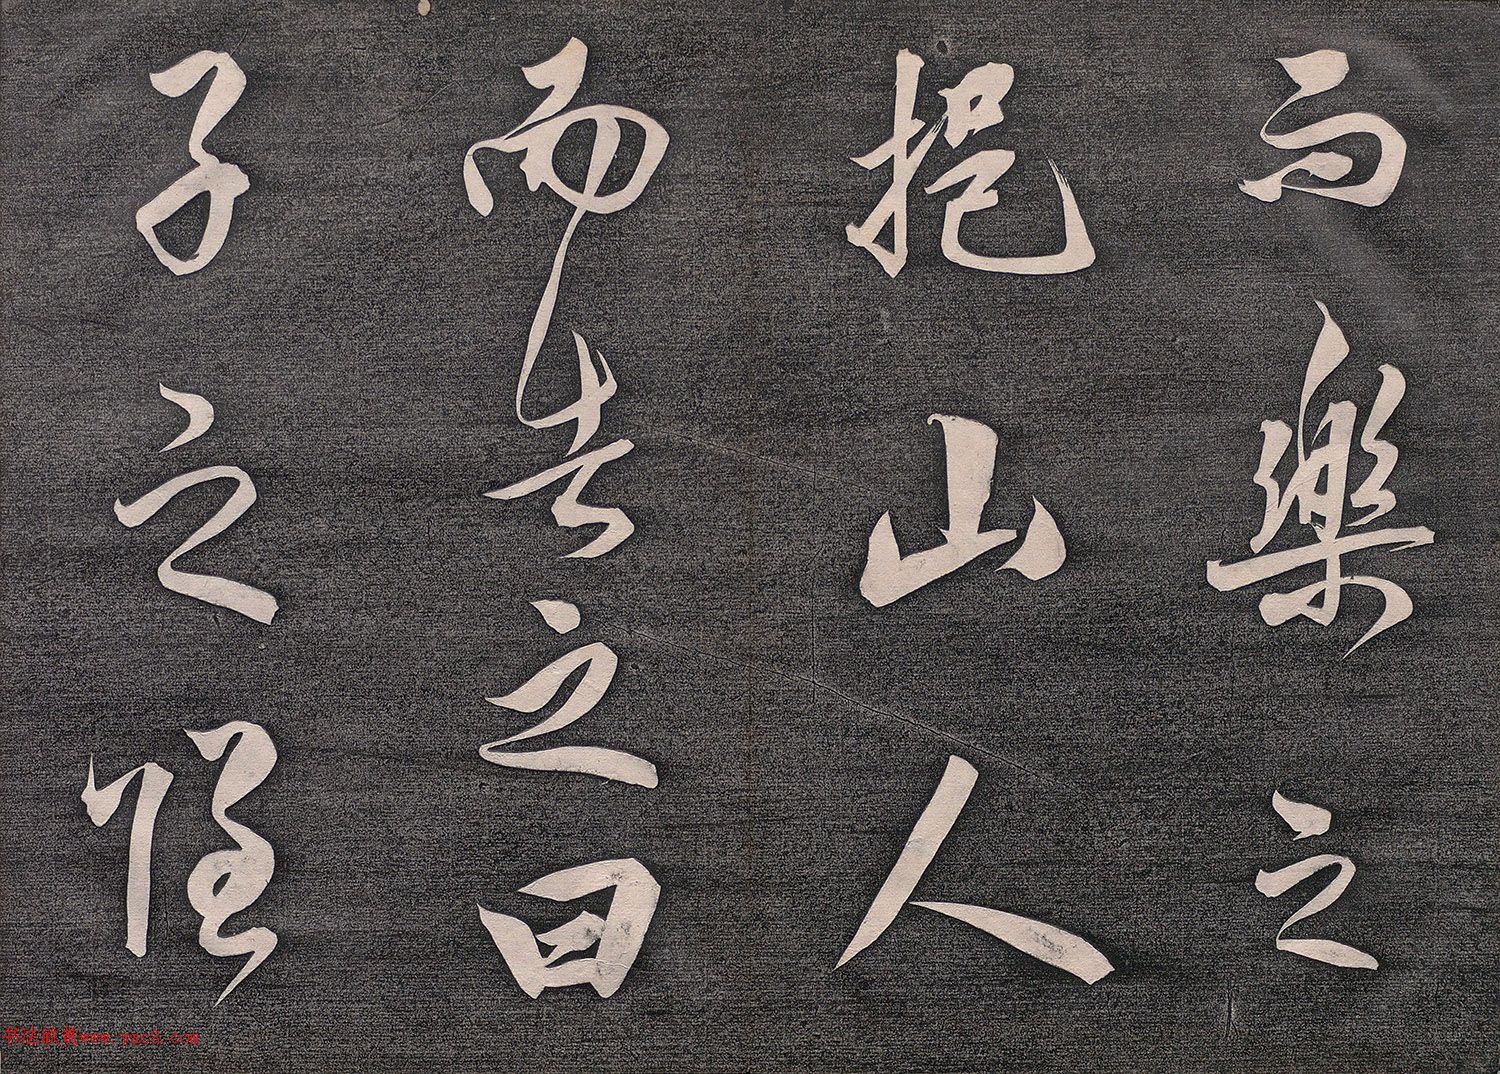 而樂之
挹山人
而告之曰
子之隱
书法欣赏www.yac8.com